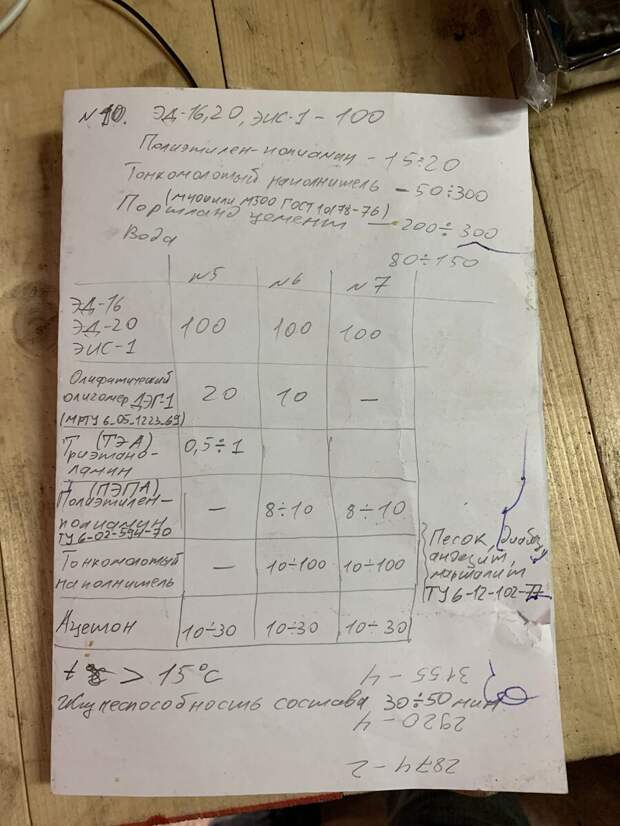 №10. ЭД-16,20, ЭИС-1 - 100
Полиэтилен-полиамин - 15÷20
Тонкомолотый наполнитель - 50÷300
(М400или М300 ГОСТ 10178-76)
Портланд цемент - 200÷300
Вода 80÷150
№5 №6 №7
ЭД-16
ЭД-20 100 100 100
ЭИС-1
Олифатический
олигомер ДЭГ-1 20 10 -
(МРТУ 6-05-1223-69)
(ТЭА) 0,5÷1
Триэтано-
ламин
(ПЭПА)
Полиэтилен- - 8÷10 8÷10
полиамин
ТУ6-02-594-70
Тонкомолотый - 10÷100 10÷100
наполнитель
Песок, диабаз
андезит,
маршалит
ТУ6-12-102-77
Ацетон 10÷30 10÷30 10÷30
t > 15°С
3155-4
Жизнеспособность состава 30÷50 мин
2920-4
2874-2